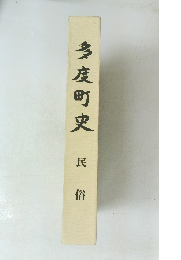 多度町史
民俗